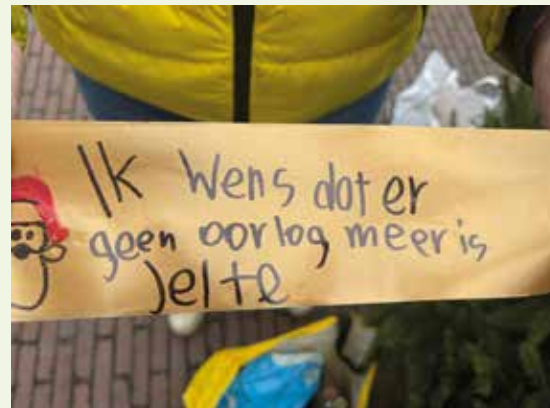 Ik wens dat er
geen oorlog meer is
Jelte